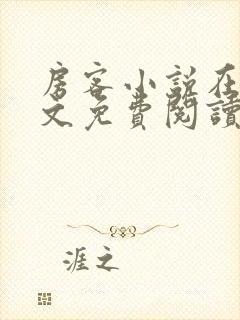 房客小説在
文免費閱讀
涯之